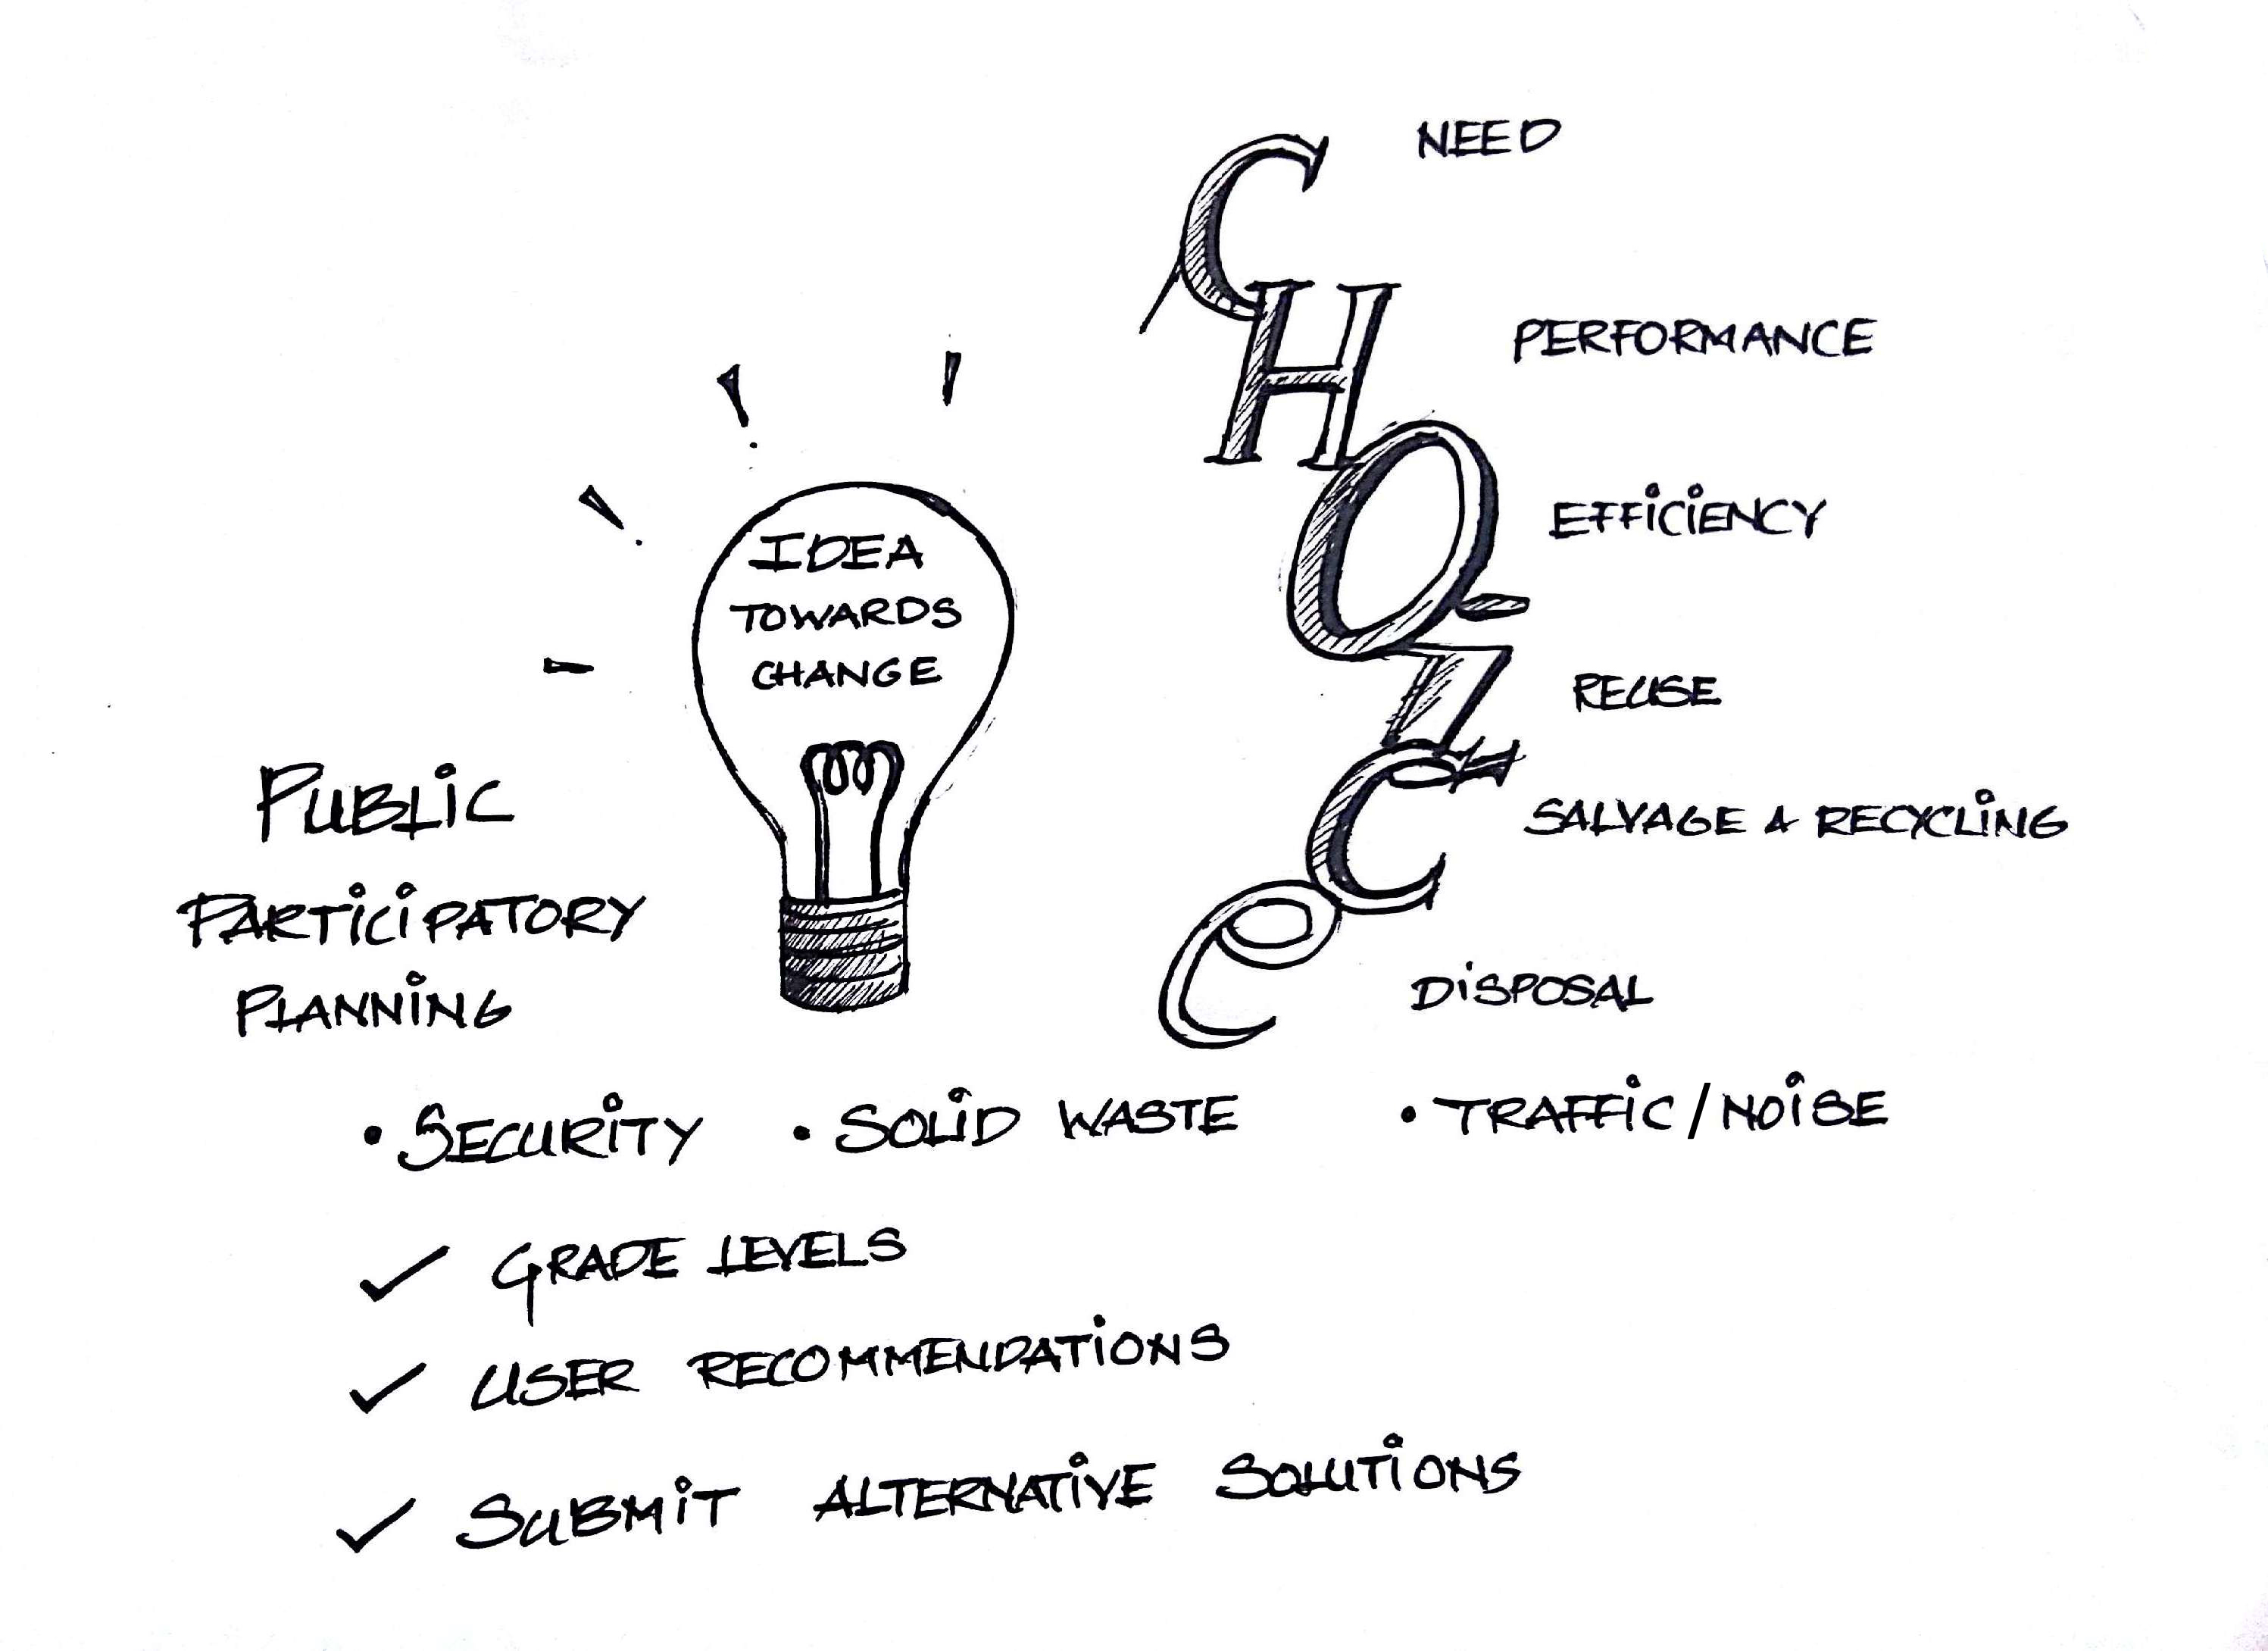 NEED
PERFORMANCE
EFFICIENCY
REUSE
SALVAGE & RECYCLING
DISPOSAL
CHOICE
IDEA
TOWARDS
CHANGE
PUBLIC
PARTICIPATORY
PLANNING
• SECURITY • SOLID WASTE • TRAFFIC/NOISE
✓ GRADE LEVELS
✓ USER RECOMMENDATIONS
✓ SUBMIT ALTERNATIVE SOLUTIONS